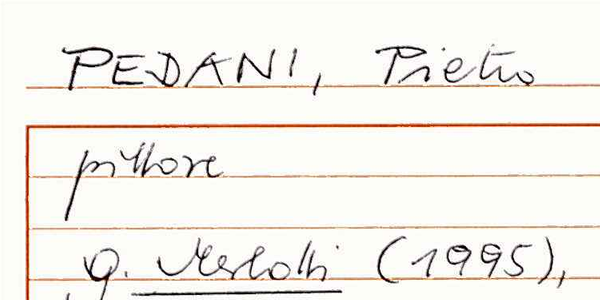 PEDANI, Pietro
pittore
G. Merlotti (1995),